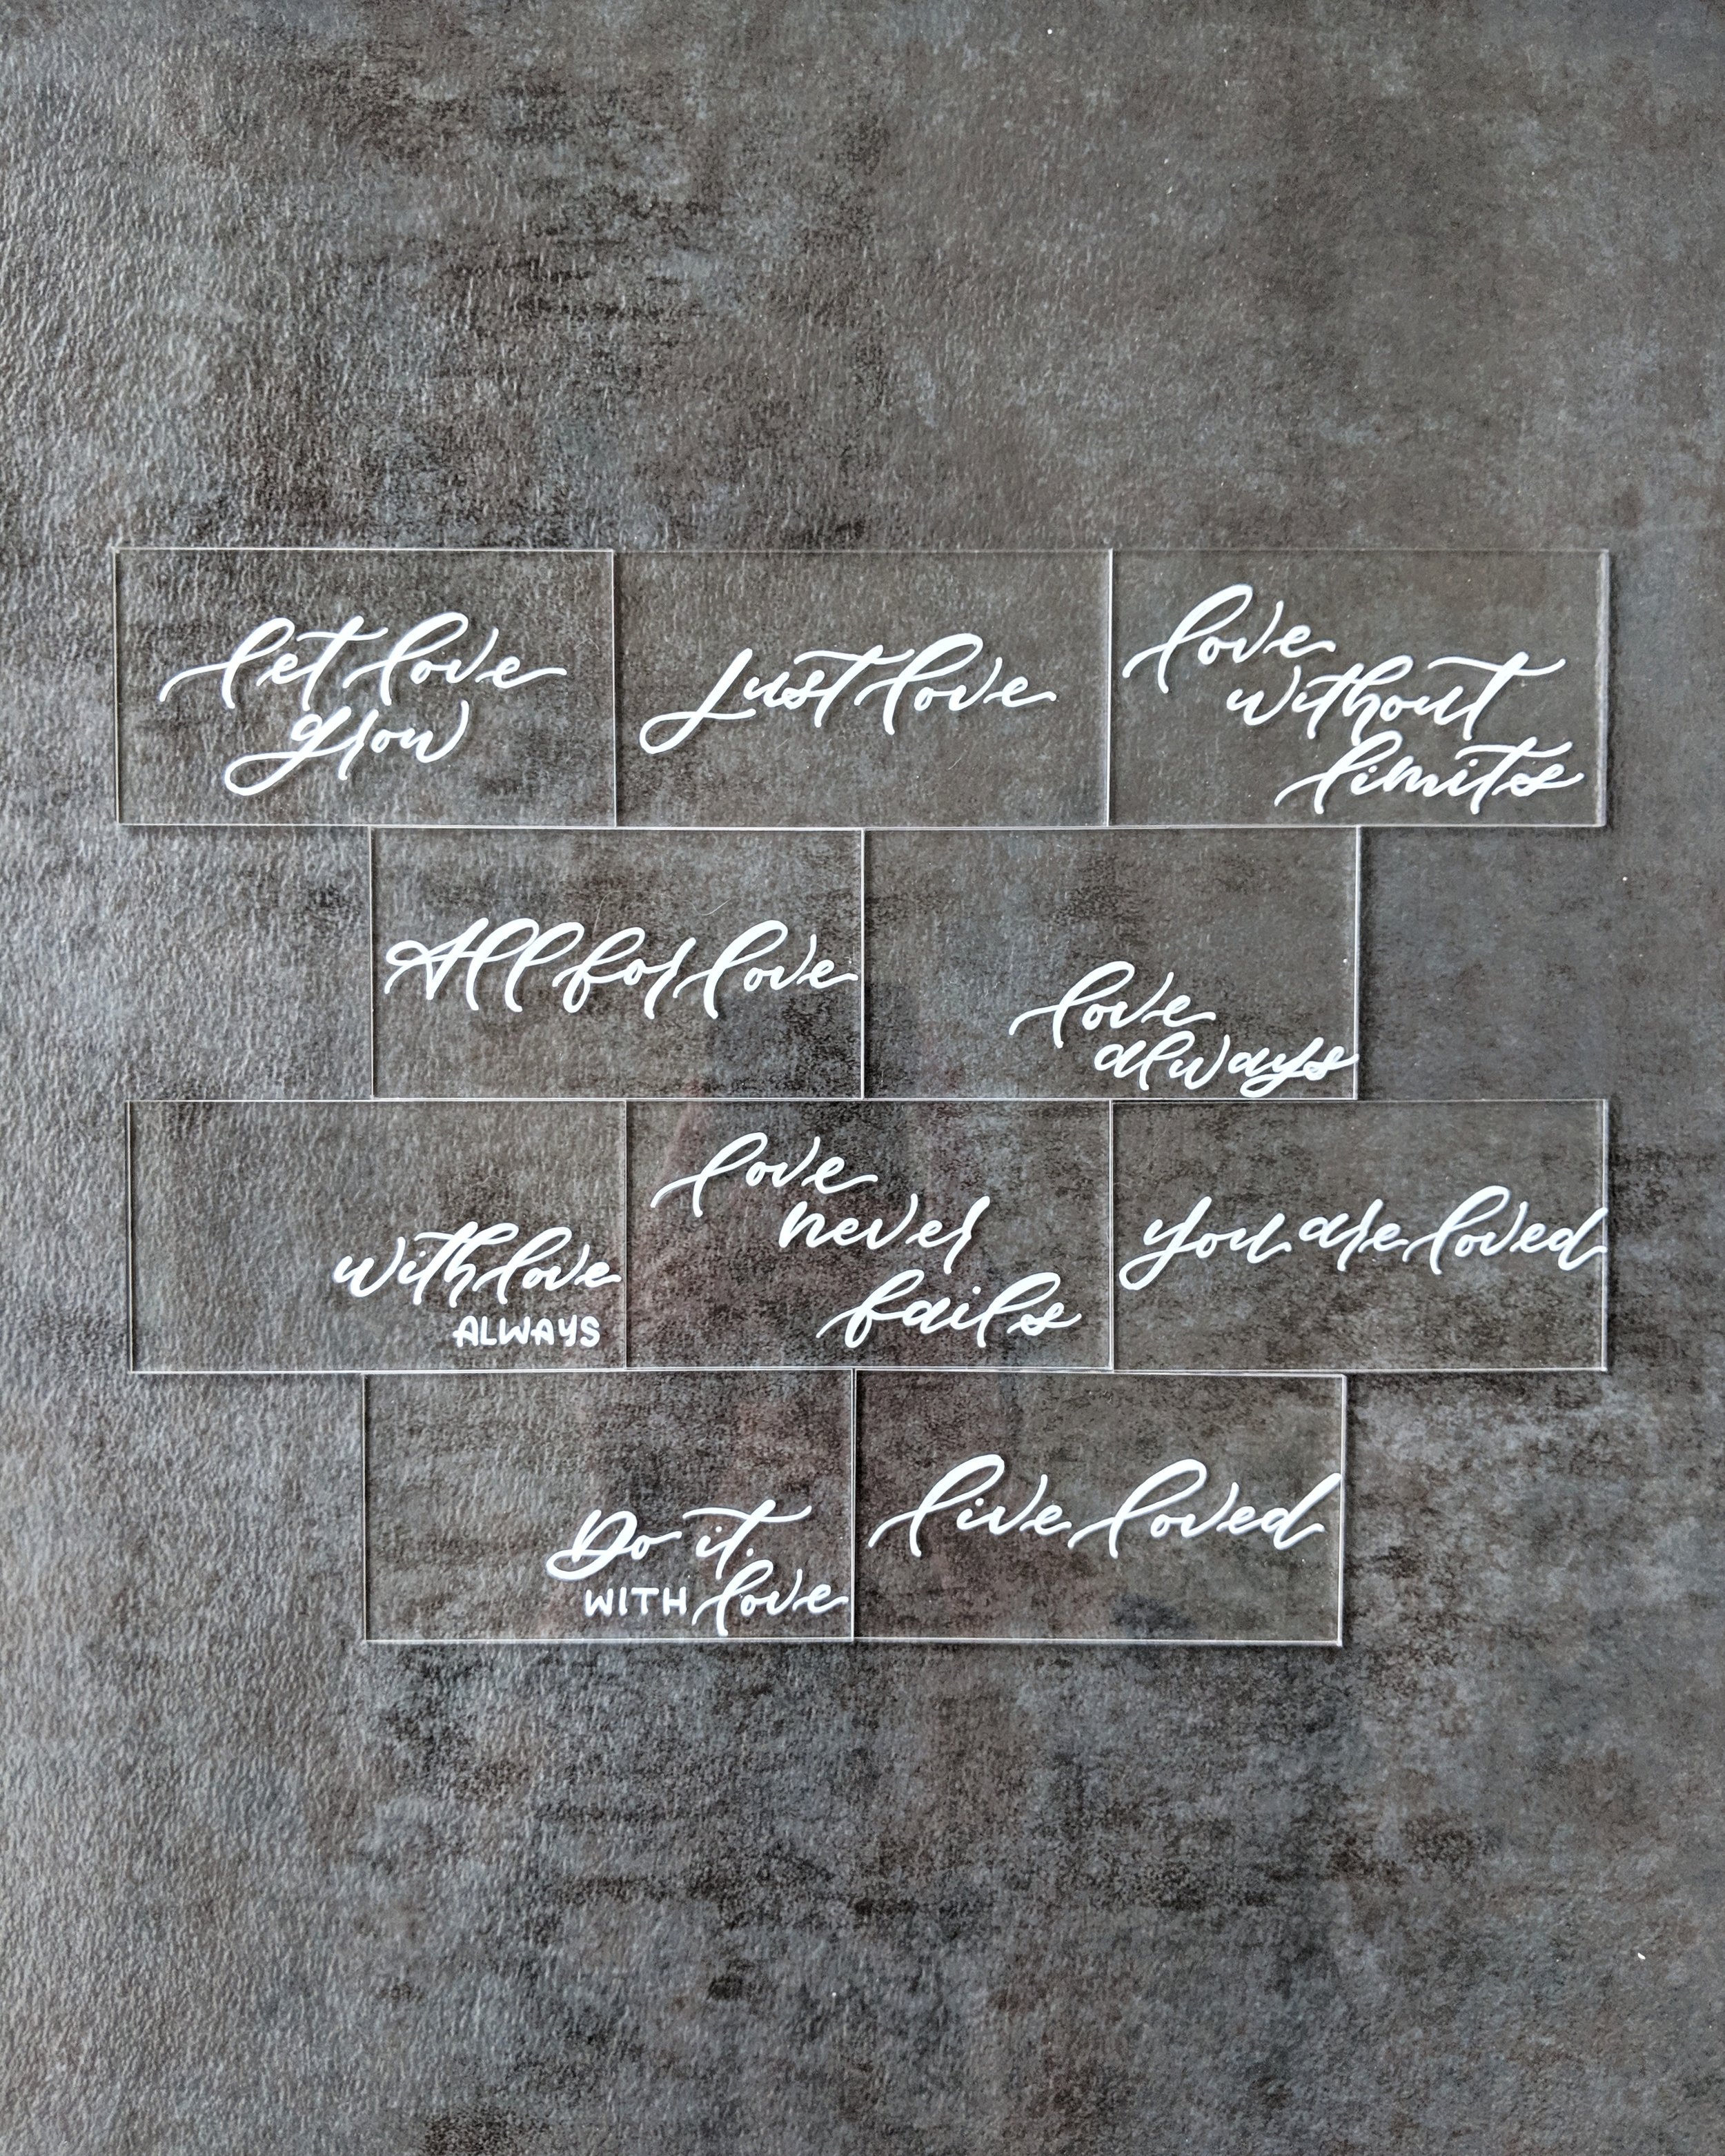 let love
grow
Just love
love
without
limits
All for love
love
always
with love
ALWAYS
love
never
fails
you are loved
Do it
WITH love
live loved